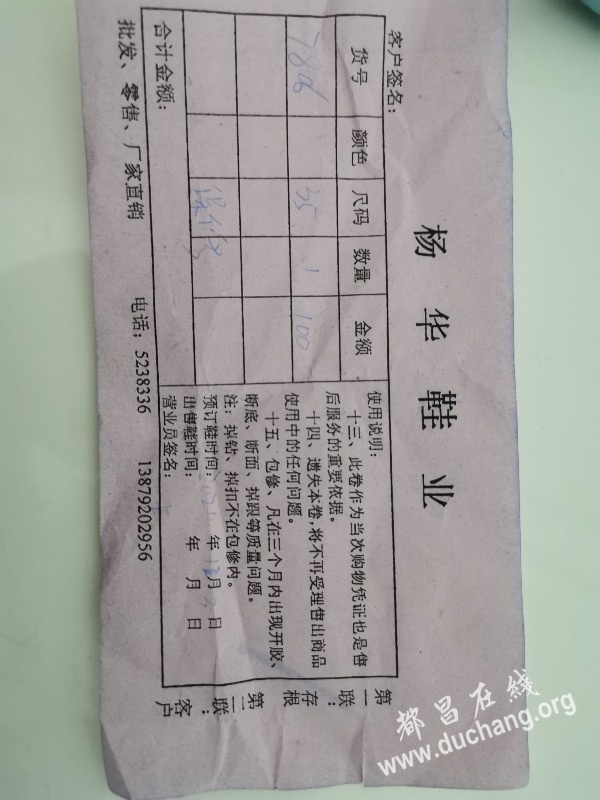 杨华鞋业
客户签名：
货号 颜色 尺码 数量 金额
7806 35 1 100
合计金额：
使用说明：
十三、此卷作为当次购物凭证也是售
后服务的重要依据。
十四、遗失本卷,将不再受理售出商品
使用中的任何问题。
十五、包修、凡在三个月内出现开胶、
断底、断面、掉跟等质量问题。
注：掉钻、掉扣不在包修内。
预订鞋时间： 年 12月 日
出售鞋时间： 年 月 日
营业员签名：
第一联：存根
第二联：客户
批发、零售、厂家直销 电话：5238336 13879202956
都昌在线
www.duchang.org